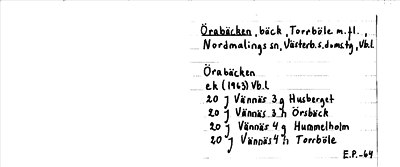 Örabäcken, bäck, Torrböle m.fl.,
Nordmalings sn, Västerb.s.domstg, Vb.l.
Örabäcken
ek (1963) Vb.l
20 J Vännäs 3 g Husberget
20 J Vännäs 3 h Örsbäck
20 J Vännäs 4 g Hummelholm
20 J Vännäs 4 h Torrböle
E.P.-64